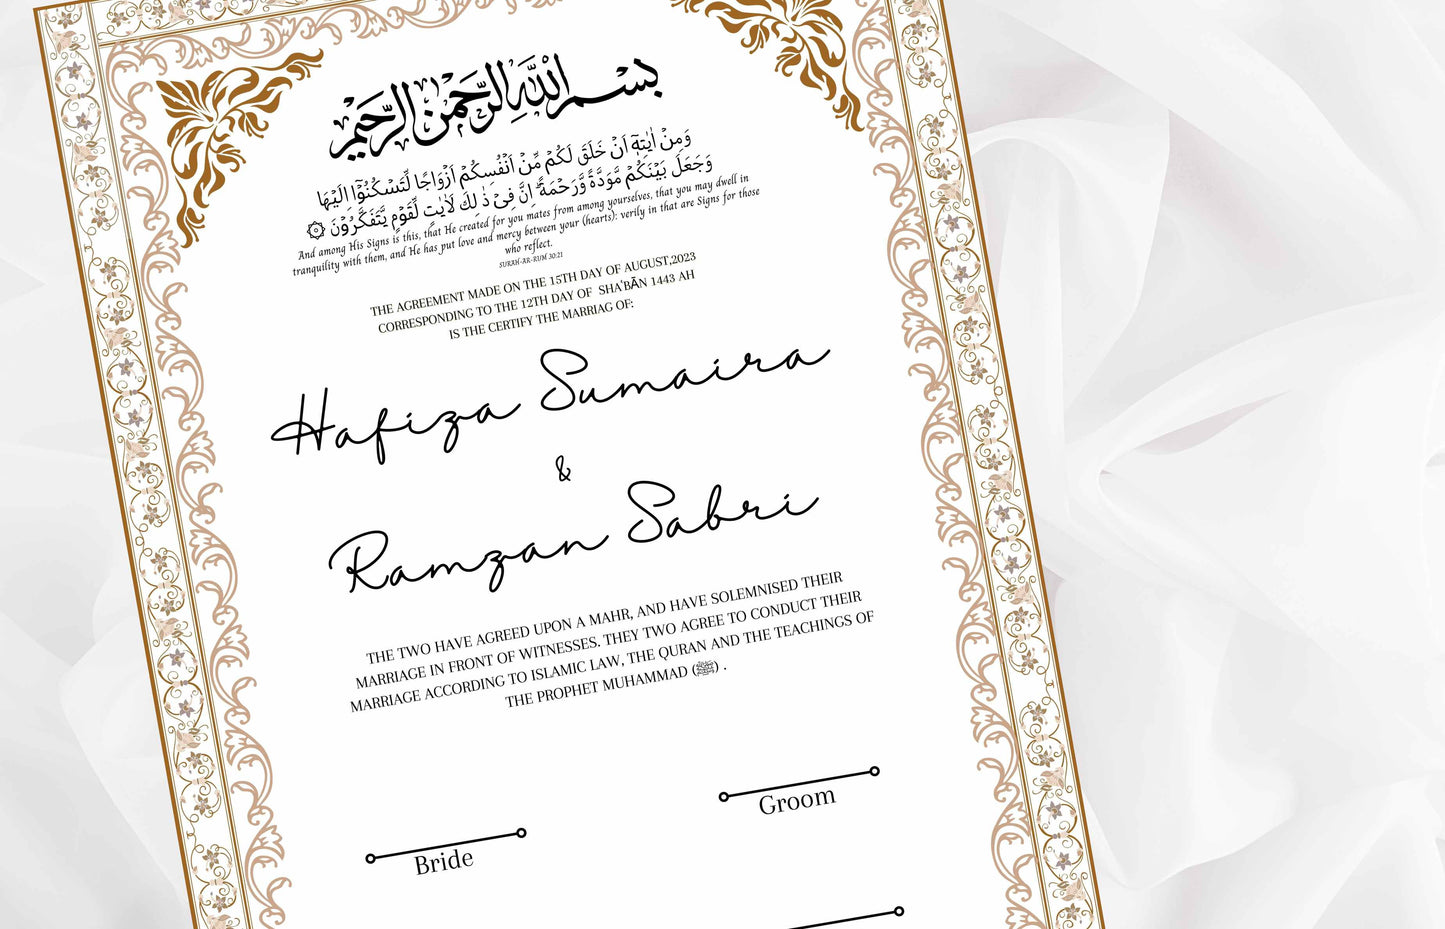 بِسْمِ اللَّهِ الرَّحْمَٰنِ الرَّحِيمِ
وَمِنْ اٰيٰتِهٖٓ اَنْ خَلَقَ لَكُمْ مِّنْ اَنْفُسِكُمْ اَزْوَاجًا لِّتَسْكُنُوْٓا اِلَيْهَا
وَجَعَلَ بَيْنَكُمْ مَّوَدَّةً وَّرَحْمَةً ۗ اِنَّ فِيْ ذٰلِكَ لَاٰيٰتٍ لِّقَوْمٍ يَّتَفَكَّرُوْنَ
And among His Signs is this, that He created for you mates from among yourselves, that you may dwell in
tranquility with them, and He has put love and mercy between your (hearts): verily in that are Signs for those
who reflect.
SURAH-AR-RUM 30:21
THE AGREEMENT MADE ON THE 15TH DAY OF AUGUST,2023
CORRESPONDING TO THE 12TH DAY OF SHAʿBĀN 1443 AH
IS THE CERTIFY THE MARRIAG OF:
Hafiza Sumaira
&
Ramzan Sabri
THE TWO HAVE AGREED UPON A MAHR, AND HAVE SOLEMNISED THEIR
MARRIAGE IN FRONT OF WITNESSES. THEY TWO AGREE TO CONDUCT THEIR
MARRIAGE ACCORDING TO ISLAMIC LAW, THE QURAN AND THE TEACHINGS OF
THE PROPHET MUHAMMAD (ﷺ) .
Groom
Bride